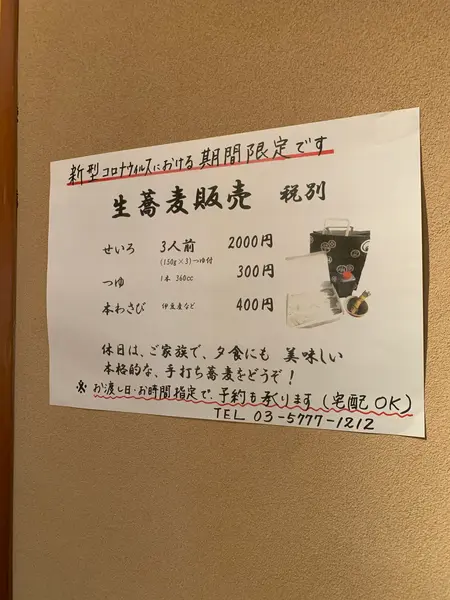 新型コロナウィルスにおける期間限定です
生蕎麦販売 税別
せいろ 3人前 2000円
(150g×3)つゆ付
つゆ 1本 360cc 300円
本わさび 伊豆産など 400円
休日は、ご家族で、夕食にも 美味しい
本格的な、手打ち蕎麦をどうぞ!
※ お渡し日・お時間指定で、予約も承ります(宅配OK)
TEL 03-5777-1212